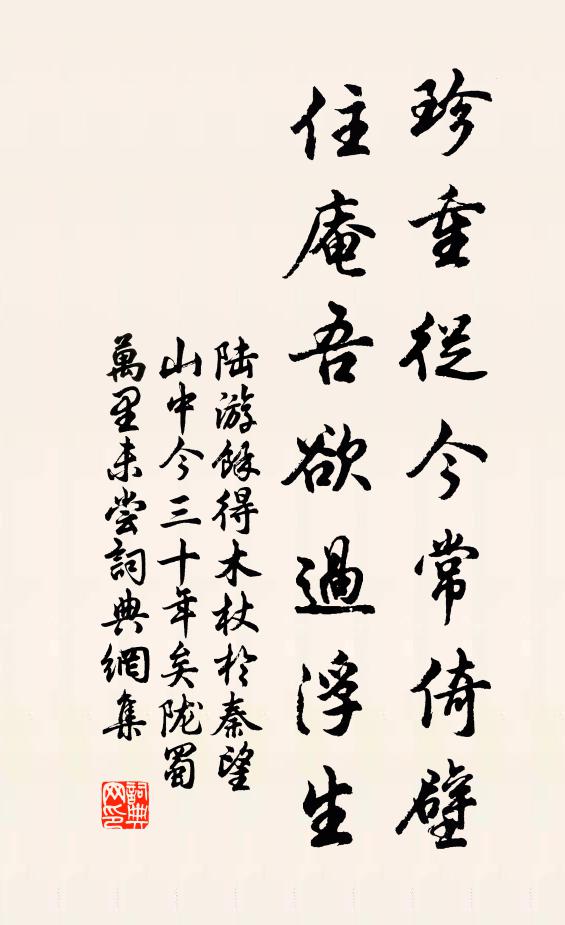 珍重從今常倚壁
住庵吾欲過浮生
陆游餘得木杖於秦望
山中今三十年矣陇蜀
萬里未尝詞典網集
詞典
网印